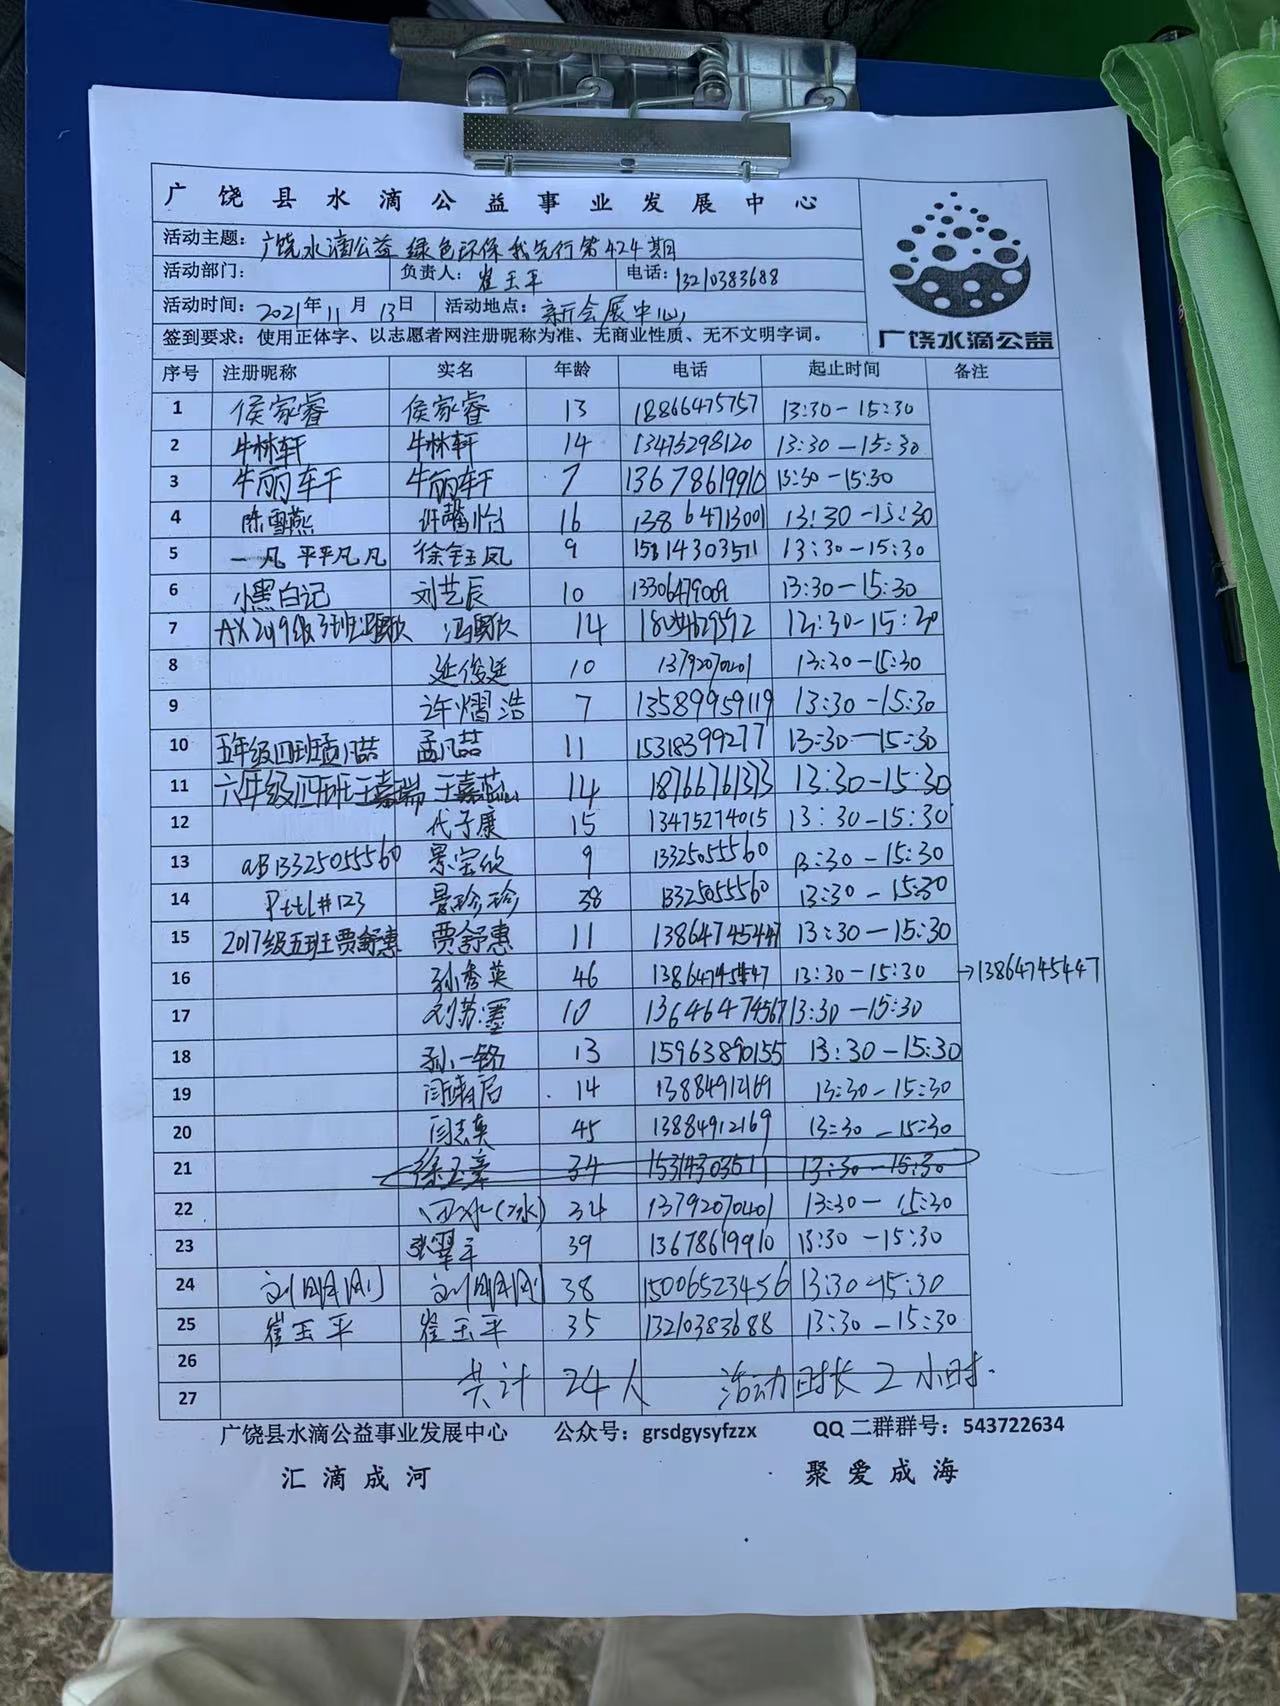 广饶县水滴公益事业发展中心
活动主题：广饶水滴公益 绿色环保我先行第424期
活动部门： 负责人：崔玉平 电话：13210383688
活动时间：2021年11月13日 活动地点：新会展中心
签到要求：使用正体字、以志愿者网注册昵称为准、无商业性质、无不文明字词。
广饶水滴公益
序号 注册昵称 实名 年龄 电话 起止时间 备注
1 侯家睿 侯家睿 13 18866475757 13:30-15:30
2 牛林轩 牛林轩 14 13475298120 13:30-15:30
3 牛丽车干 牛丽车干 7 13678619910 13:30-15:30
4 陈雪燕 16 13864713001 13:30-15:30
5 一凡平平凡凡 徐钰凤 9 13:30-15:30
6 小黑白记 刘艺辰 10 13:30-15:30
7 AX2019级3班 14 13:30-15:30
8 延俊廷 10 13792070401 13:30-15:30
9 许熠浩 7 13589959119 13:30-15:30
10 五年级四班孟凡喆 孟凡喆 11 15318399277 13:30-15:30
11 六年级四班王嘉瑞 14 18766761373 13:30-15:30
12 代子康 15 13475274015 13:30-15:30
13 aB13325055560 景宝欣 9 13325055560 13:30-15:30
14 Pttl#123 景珍珍 38 13325055560 13:30-15:30
15 2017级五班贾舒惠 贾舒惠 11 13864745447 13:30-15:30
16 孙秀英 46 13864745447 13:30-15:30 →13864745447
17 刘苏墨 10 13646474567 13:30-15:30
18 孙一铭 13 15963890155 13:30-15:30
19 14 13884912169 13:30-15:30
20 闫志英 45 13884912169 13:30-15:30
21 34 15314303511 13:30-15:30
22 34 13792070401 13:30-15:30
23 张翠平 39 13678619910 13:30-15:30
24 刘明刚 刘明刚 38 15006523456 13:30-15:30
25 崔玉平 崔玉平 35 13210383688 13:30-15:30
26
共计24人 活动时长2小时.
27
广饶县水滴公益事业发展中心 公众号：grsdgysyfzzx QQ二群群号：543722634
汇滴成河 聚爱成海